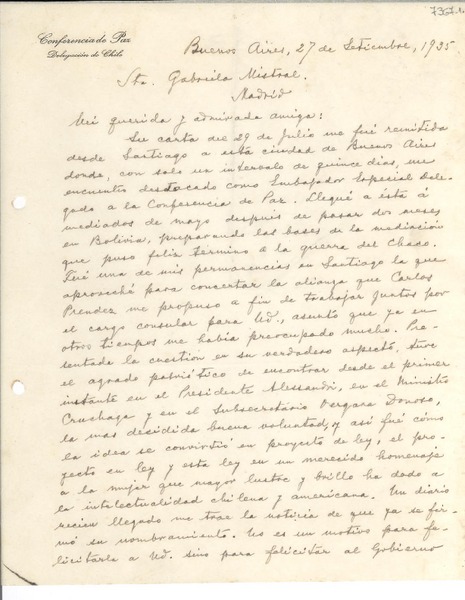 Conferencia de Paz
Delegación de Chile
Buenos Aires, 27 de Setiembre, 1935
Sta. Gabriela Mistral.
Madrid
Mi querida y admirada amiga:
Su carta del 29 de Julio me fué remitida
desde Santiago a esta ciudad de Buenos Aires
donde, con solo un intervalo de quince días, me
encuentro destacado como Embajador Especial Dele-
gado a la Conferencia de Paz. Llegué a ésta á
mediados de mayo después de pasar dos meses
en Bolivia, preparando las bases de la mediación
que puso feliz término a la guerra del Chaco.
Fué una de mis permanencias en Santiago la que
aproveché para concertar la alianza que Carlos
Prendez me propuso a fin de trabajar juntos por
el cargo consular para Ud., asunto que ya en
otros tiempos me había preocupado mucho. Pre-
sentada la cuestión en su verdadero aspecto, tuve
el agrado patriótico de encontrar desde el primer
instante en el Presidente Alessandri, en el Ministro
Cruchaga y en el Subsecretario Vergara Donoso,
la mas decidida buena voluntad, y así fué cómo
la idea se convirtió en proyecto de ley, el pro-
yecto en ley y esta ley en un merecido homenaje
a la mujer que mayor lustre y brillo ha dado a
la intelectualidad chilena y americana. Un diario
recien llegado me trae la noticia de que ya se fir-
mó su nombramiento. No es un motivo para fe-
licitarla a Ud. sino para felicitar al Gobierno